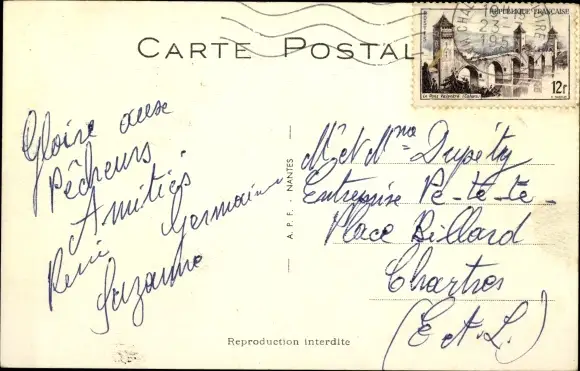 CARTE POSTALE
RÉPUBLIQUE FRANÇAISE
Le Pont Valentré (Cahors)
12f
Gloire aux
Pêcheurs
Amitiés
René Germaine
Suzanne
A. P. F. - NANTES
Mr et Mme Dupéty
Entreprise Pe-te-te-
Place Billard
Chartres
(E et L.)
Reproduction interdite